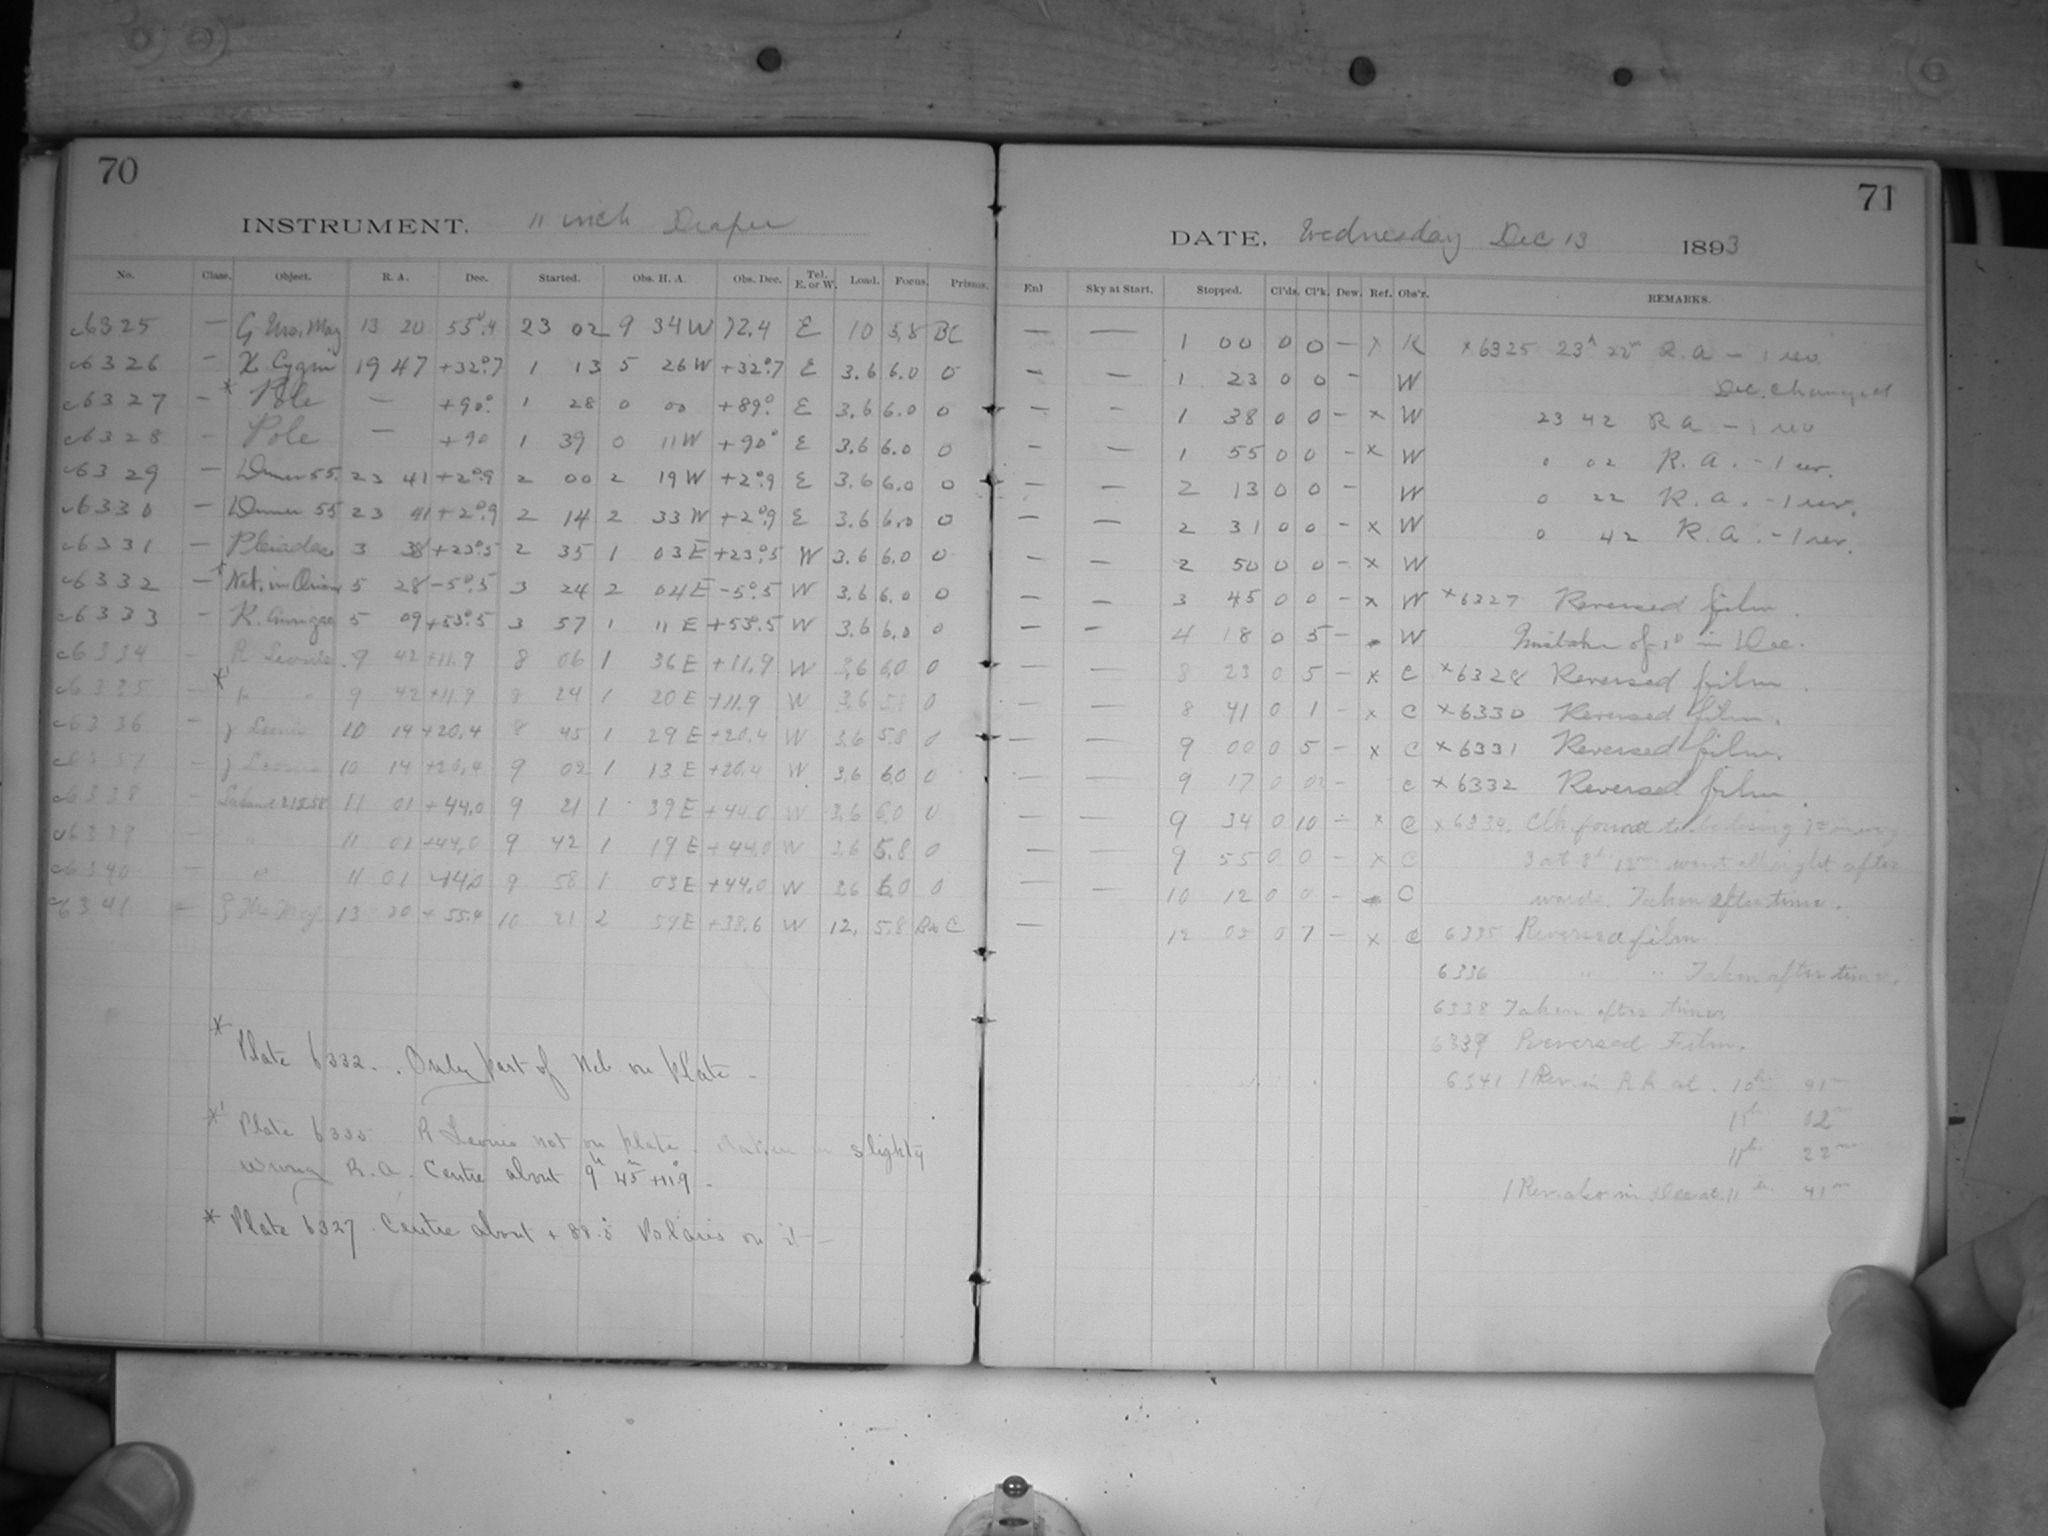 70
INSTRUMENT. 11 inch Draper
No. Class. Object. R. A. Dec. Started. Obs. H. A Obs. Dec. Tel. E. or W. Load. Focus. Prisms.
c6325 — Urs. Maj 13 20 55°.4 23 02 9 34 W 72.4 E 10 5.8 BC
c6326 — X Cygni 19 47 +32°.7 1 13 5 26 W +32°.7 E 3.6 6.0 0
c6327 — * Pole — +90° 1 28 0 00 +89° E 3.6 6.0 0
c6328 — Pole — +90 1 39 0 11 W +90° E 3.6 6.0 0
c6329 — Duner 55. 23 41 +2°.9 2 00 2 19 W +2°.9 E 3.6 6.0 0
c6330 — Duner 55 23 41 +2°.9 2 14 2 33 W +2°.9 E 3.6 6.0 0
c6331 — Pleiades 3 38 +23°.5 2 35 1 03 E +23°.5 W 3.6 6.0 0
c6332 — * Neb. in Orion 5 28 -5°.5 3 24 2 04 E -5°.5 W 3.6 6.0 0
c6333 — R. Aurigae 5 09 +53°.5 3 57 1 11 E +53°.5 W 3.6 6.0 0
c6334 — R Leonis 9 42 +11.9 8 06 1 36 E +11.9 W 3.6 6.0 0
c6335 — *' " " 9 42 +11.9 8 24 1 20 E +11.9 W 3.6 5.8 0
c6336 — Leonis 10 14 +20.4 8 45 1 29 E +20.4 W 3.6 5.8 0
c6337 — Leonis 10 14 +20.4 9 02 1 13 E +20.4 W 3.6 6.0 0
c6338 — 11 01 +44.0 9 21 1 39 E +44.0 W 3.6 6.0 0
c6339 — " 11 01 +44.0 9 42 1 19 E +44.0 W 3.6 5.8 0
c6340 — " 11 01 +44.0 9 58 1 03 E +44.0 W 3.6 6.0 0
c6341 — Urs. Maj. 13 20 + 55.4 10 21 2 59 E +38.6 W 12. 5.8 C
* Plate 6332. . Only part of Neb. on plate —
*' Plate 6335 R Leonis not on plate. slightly
wrong R. A. Centre about 9h 45m +11°.9 .
* Plate 6327. Centre about + 88.5° Polaris on it —
71
DATE, Wednesday Dec 13 1893
Enl Sky at Start. Stopped. Cl'ds. Cl'k. Dew. Ref. Obs'r. REMARKS.
— — 1 00 0 0 — x K x6325 23h 22m R.A — 1 rev
— — 1 23 0 0 — W Dec. changed
— — 1 38 0 0 — x W 23 42 R A — 1 rev
— — 1 55 0 0 — x W 0 02 R. A. - 1 rev.
— — 2 13 0 0 — W 0 22 R. A. - 1 rev.
— — 2 31 0 0 — x W 0 42 R. A. - 1 rev.
— — 2 50 0 0 — x W
— — 3 45 0 0 — x W x6327 Reversed film.
— — 4 18 0 5 — W mistake of 1° in Dec.
— — 8 23 0 5 — x C x6328 Reversed film.
— — 8 41 0 1 — x C x6330 Reversed film.
— — 9 00 0 5 — x C x6331 Reversed film.
— — 9 17 0 — C x6332 Reversed film.
— — 9 34 0 10 — x C x6334. Clk found to be losing
— — 9 55 0 0 — x C 3 at 8h 12m went all right after
— — 10 12 0 0 — C wards. Taken after time.
— 12 05 0 7 — x C 6335 Reversed film
6336 " " Taken after time.
6338 Taken after time.
6339 Reversed Film.
6341 1 Rev. in R A at. 10h 41m
11h 02m
11h 22m
1 Rev. also in Dec at. 11h 41m